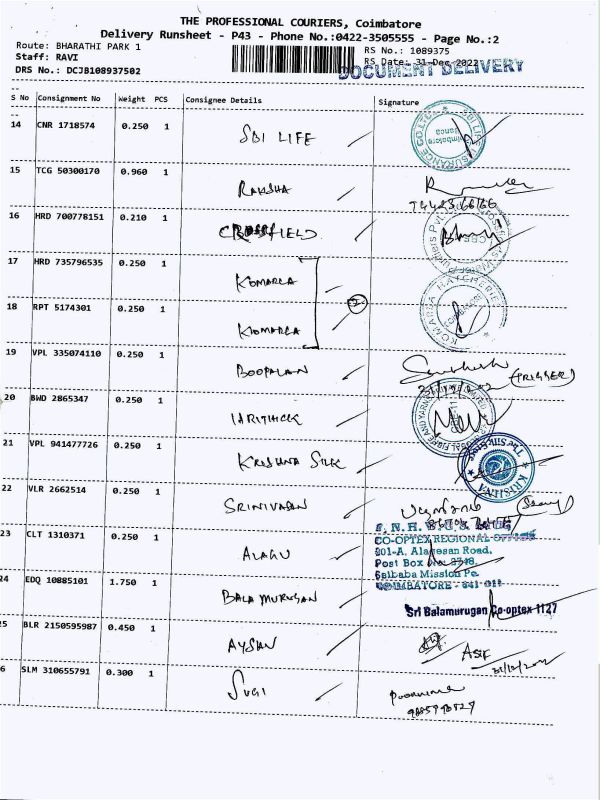 THE PROFESSIONAL COURIERS, Coimbatore
Delivery Runsheet - P43 - Phone No.:0422-3505555 - Page No.:2
Route: BHARATHI PARK 1
RS No.: 1089375
Staff: RAVI
RS Date: 31-Dec 2022
DRS No.: DCJB108937502
DOCUMENT DELIVERY
S No Consignment No Weight PCS Consignee Details Signature
14 CNR 1718574 0.250 1 SBI LIFE
15 TCG 50300170 0.960 1 RAKSHA
16 HRD 700778151 0.210 1 CROSSFIELD
17 HRD 735796535 0.250 1 KOMARLA
18 RPT 5174301 0.250 1 KOMARLA
KOMARLA HATCHERIE
19 VPL 335074110 0.250 1 BOOPALAN
(TRIGGER)
20 BWD 2865347 0.250 1
21 VPL 941477726 0.250 1 KRISHNA SILK
KRISHNA
22 VLR 2662514 0.250 1 SRINIVASAN
CO-OPTEX REGIONAL OFFICE
23 CLT 1310371 0.250 1 ALAGU
Alagesan Road,
Post Box
Saibaba Mission
COIMBATORE - 641 011
24 EDQ 10885101 1.750 1 BALA MURUGAN
Sri Balamurugan Co-optex 1127
25 BLR 2150595987 0.450 1 AYSAN
ASIF
31/12/2022
6 SLM 310655791 0.300 1 SUGI
Poornima